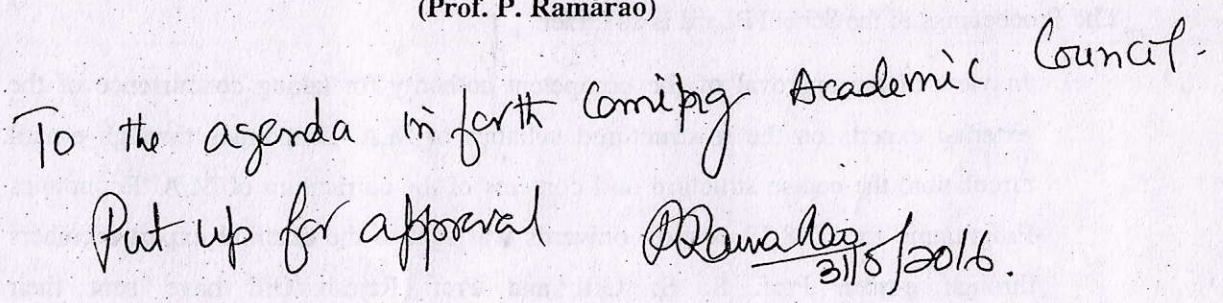 (Prof. P. Ramarao)
To the agenda in forth coming Academic Council.
Put up for approval PRamaRao
31/5/2016.